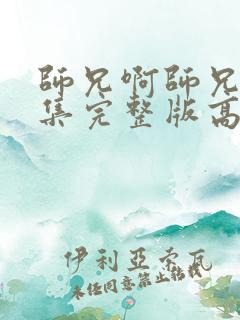 師兄啊師兄
集完整版高
伊利亞索瓦
未经同意禁止转载